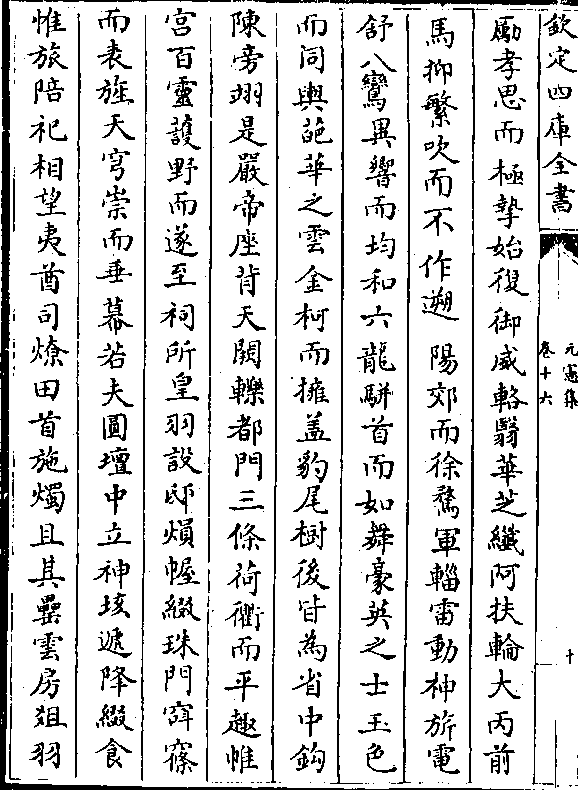 欽定四庫全書
元憲集
卷十六
十
勵孝思而極摯始復御威輅翳華芝纎阿扶輪大丙前
馬抑繁吹而不作遡陽郊而徐騖軍輜雷動神旂電
舒八鸞異響而均和六龍駢首而如舞豪英之士玉色
而同輿葩華之雲金柯而擁盖豹尾樹後皆為省中鈎
陳旁翊是嚴帝座背天闕轢都門三條荷衢而平趣帷
宮百靈䕶野而遂至祠所皇羽設邸熉幄綴珠門窅窱
而表旌天穹崇而垂幕若夫圓壇中立神垓遞降綴食
惟旅陪祀相望夷酋司燎田首施燭且其罍雲房俎羽